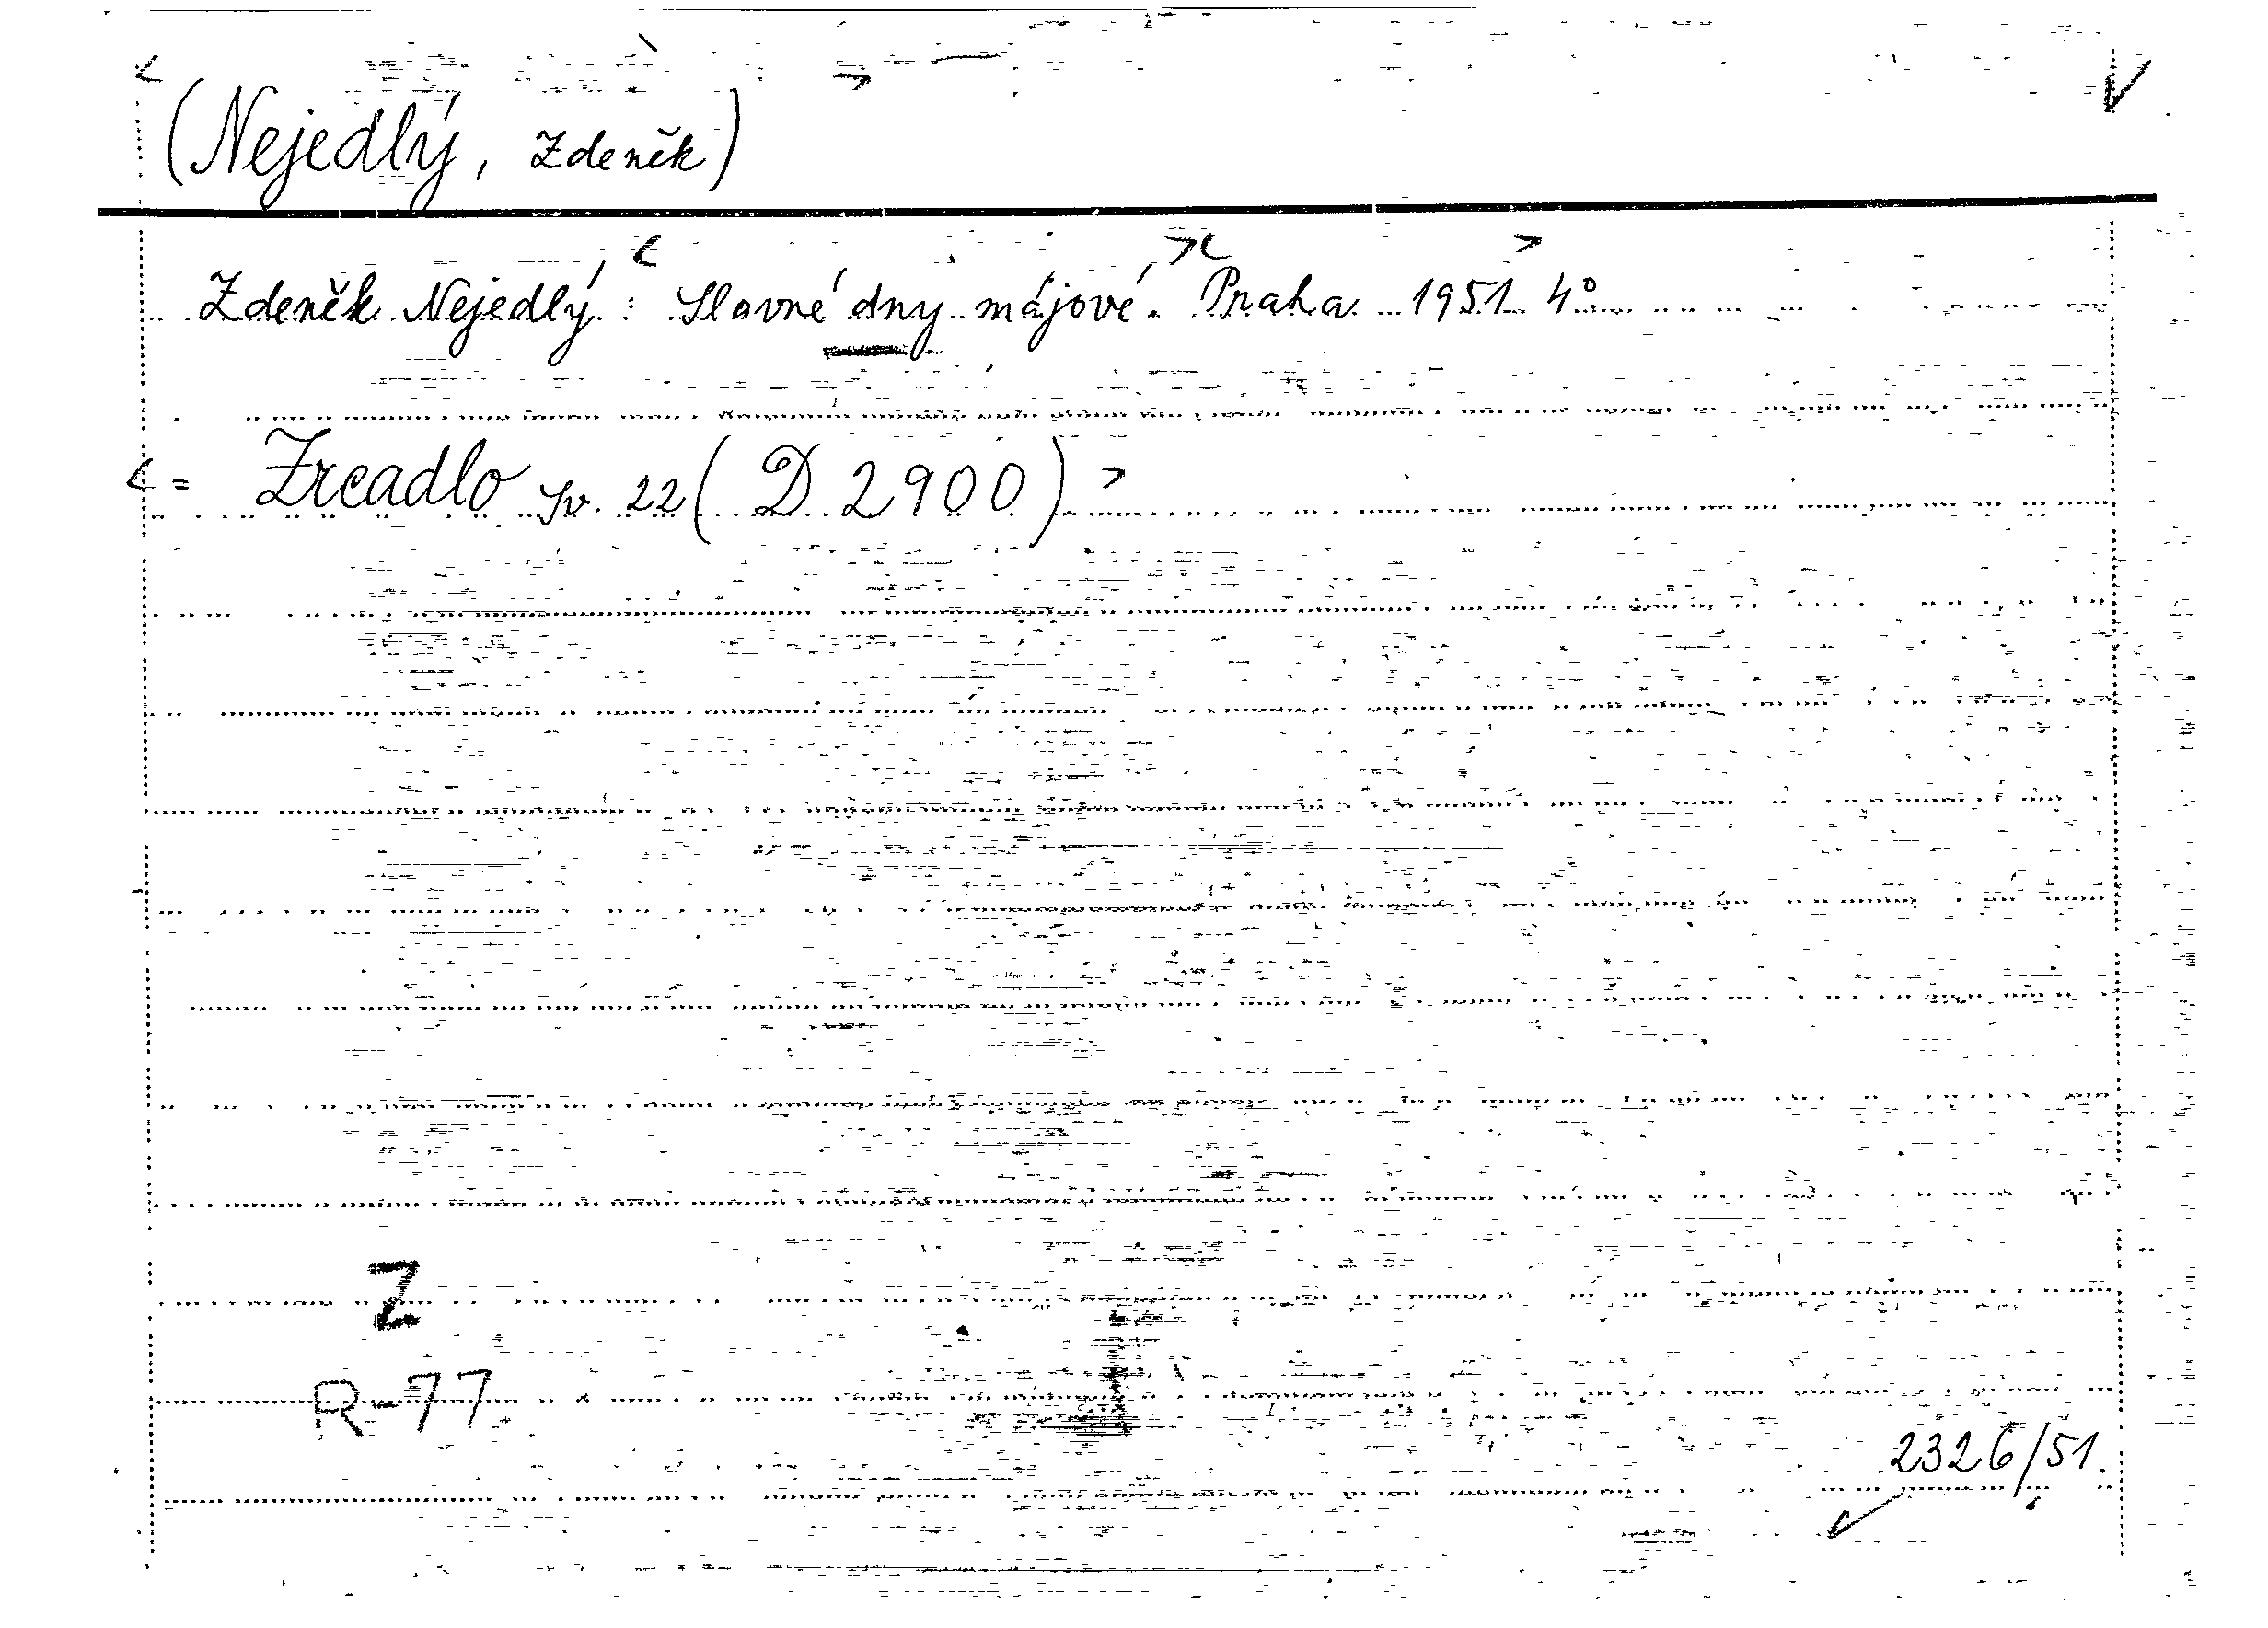 (Nejedlý, Zdeněk)
Zdeněk Nejedlý: Slavné dny májové. Praha 1951 4°
= Zrcadlo sv. 22 (D 2900)
Z
R-77
2326/51.